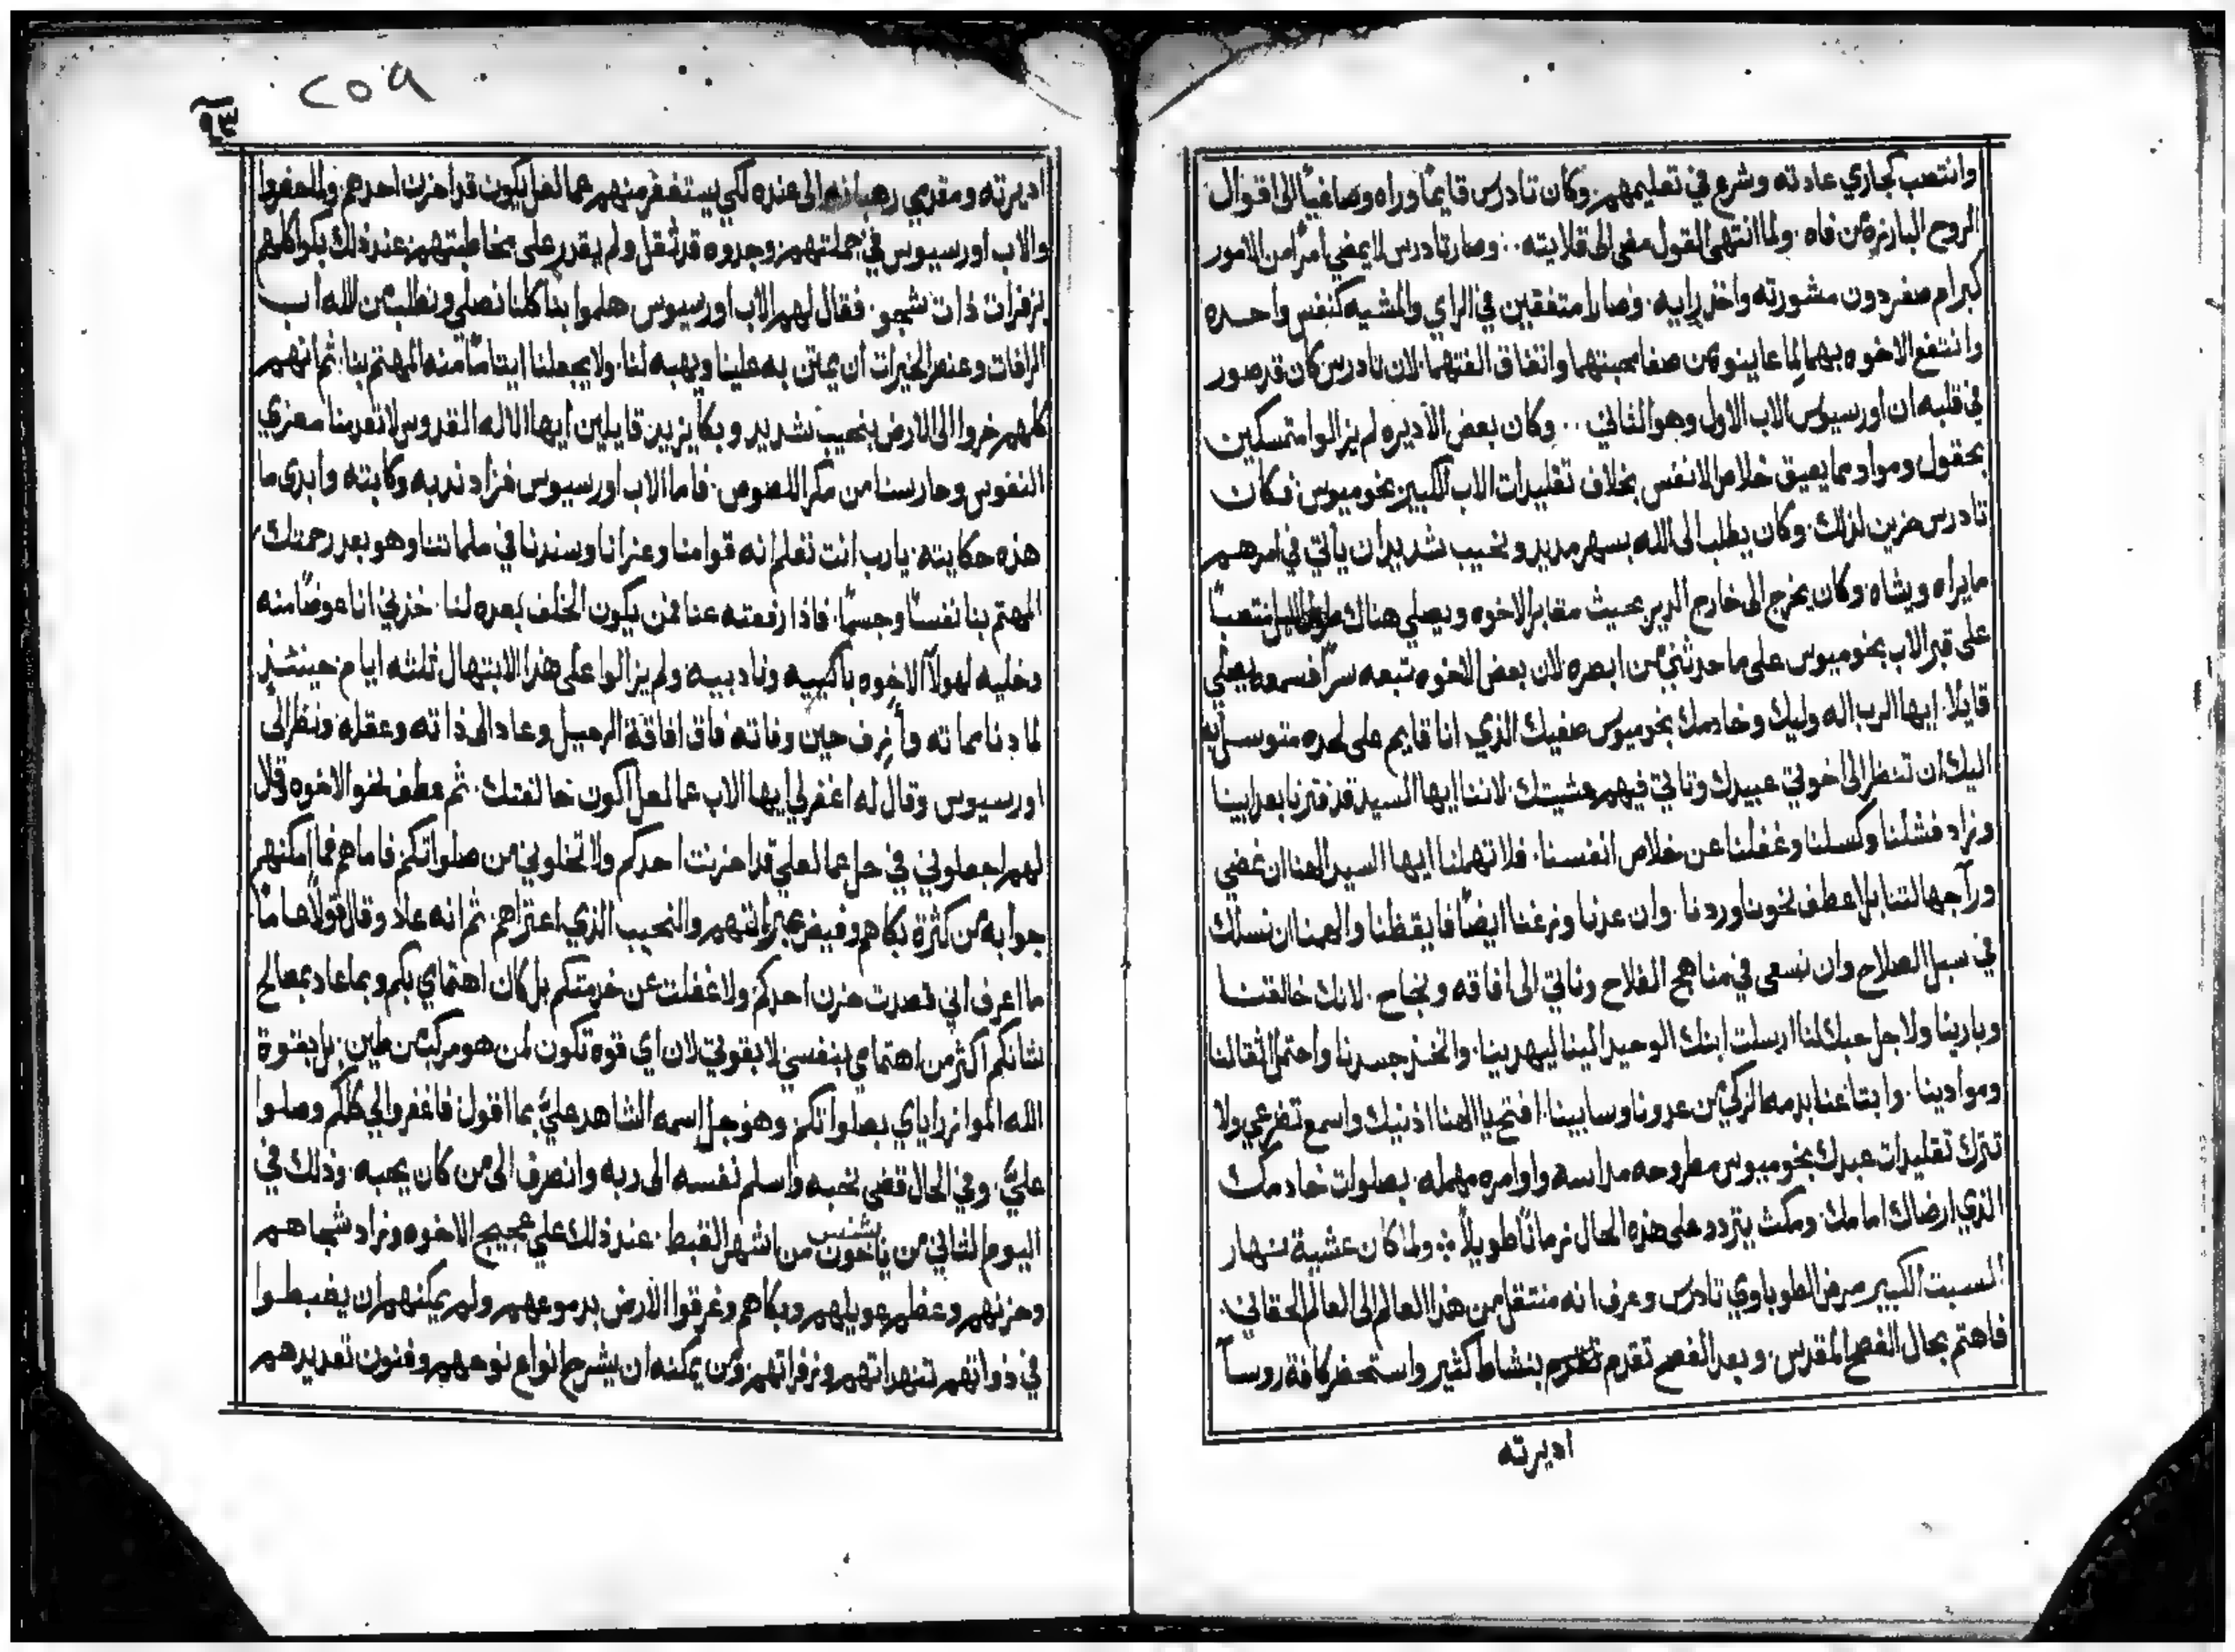 وانتصب كجاري عادته وشرع في تعليمهم. وكان تادرس قايمًا وراه وصاغيًا الى اقوال
الروح البارزة من فاه. ولما انتهى القول مضى الى قلايته. وصار تادرس لا يمضي امرًا من الامور
كبر ام صغر دون مشورته واخذ رايه. وصارا متفقين في الراي والمشيه كنفس واحده
وانتفع الاخوه بهما لما عاينوه من صفا محبتهما واتفاق الفتهما. لان تادرس كان قد صور
في قلبه ان اورسيوس الاب الاول وهو الثاني .. وكان بعض الاديره لم يزالوا متمسكين
بحقول ومواد مما يعيق خلاص الانفس بخلاف تقليدات الاب الكبير بخوميوس فكان
تادرس حزين لذلك. وكان يطلب الى الله بسهر مديد ونحيب شديد ان ياتي في امرهم
ما يراه ويشاه. وكان يخرج الى خارج الدير بحيث مقابر الاخوه ويصلي هناك طول الليل منتصبًا
على قبر الاب بخوميوس على ما حدثني من ابصره لان بعض الاخوه تبعه سرًا فسمعه يصلي
قايلا. ايها الرب اله وليك وخادمك بخوميوس صفيك الذي انا قايم على لحده متوسل به
اليك ان تنظر الى اخوتي عبيدك وتاتي فيهم مشيتك. لاننا ايها السيد قد فترنا بعد ابينا
وزاد فشلنا وكسلنا وغفلنا عن خلاص انفسنا. فلا تهملنا ايها السيد الهنا ان غضي
ورآ جهالتنا بل اعطف نحونا وردنا. وان عدنا وزغنا ايضًا فايقظنا والهمنا ان نسلك
في سبل الصلاح وان نسعى في مناهج الفلاح وناتي الى افاقه ونجاح. لانك خالقنا
وبارينا ولاجل حبك لنا ارسلت ابنك الوحيد الينا ليهدينا. واتخذ جسدنا واحتمل اثقالنا
وموادينا. وابتاعنا بدمه الزكي من عدونا وسابينا. افتح يا الهنا اذنيك واسمع تضرعي ولا
تترك تقليدات عبدك بخوميوس مطروحه مداسه واوامره مهمله. بصلوات خادمك
الذي ارضاك امامك. ومكث يتردد على هذه الحال زمانًا طويلاً ∴ ولما كان عشية نهار
السبت الكبير مرض الطوباوي تادرس وعرف انه منتقل من هذا العالم الى العالم الحقاني.
فاهتم بحال الفصح المقدس. وبعد الفصح تقدم بنشاط كثير واستحضر كافة روسآ
اديرته
٩٣
٢٥٩
اديرته ومقدمي رهبانه الى عنده لكي يستغفر منهم عما لعل يكون قد احزن احدهم. ولما حضروا
والاب اورسيوس في جملتهم وجدوه قد ثقل ولم يقدر على مخاطبتهم. عند ذلك بكوا كلهم
بزفرات ذات شجو. فقال لهم الاب اورسيوس هلموا بنا كلنا نصلي ونطلب من الله اب
الرافات وعنصر الخيرات ان يمتن به علينا ويهبه لنا. ولا يجعلنا ايتامًا منه المهتم بنا. ثم انهم
كلهم خروا الى الارض بنحيب شديد وبكا يزيد قايلين ايها الاله القدوس لا تعدمنا معزي
النفوس وحارسنا من مكر اللصوص. فاما الاب اورسيوس فزاد ندبه وكابته وابدى ما
هذه حكايته. يارب انت تعلم انه قوامنا وعزانا وسندنا في ملماتنا وهو بعد رحمتك
المهتم بنا نفسًا وجسمًا. فاذا رفعته عنا فمن يكون الخلف بعده لنا. خذني انا عوضًا منه
وخليه لهولآ الاخوه باكييه ونادبيه ولم يزالوا على هذا الابتهال ثلثه ايام حينئذ
لما دنا مماته وأزف حين وفاته فاق افاقة الرحيل وعاد الى ذاته وعقله ونظر الى
اورسيوس وقال له اغفر لي ايها الاب عما لعل اكون خالفتك. ثم عطف نحو الاخوه وقال
لهم اجعلوني في حل عما لعلي قد احزنت احدكم ولا تخلوني من صلواتكم فاما هم فما امكنهم
جوابه من كثرة بكاهم وفيض عبراتهم والنحيب الذي اعتراهم. ثم انه عاد وقال قولاً هامًا
ما اعرف اني قصدت حزن احدكم ولا غفلت عن خدمتكم بل كان اهتمامي بكم وبما عاد بمصالح
شانكم اكثر من اهتمامي بنفسي لا بقوتي لان اي قوة تكون لمن هو مركب من طين. بل بقوة
الله الموازر اياي بصلواتكم وهو جل اسمه الشاهد عليَّ بما اقول فاغفروا لي كلكم وصلوا
عليَّ. وفي الحال قضى نحبه واسلم نفسه الى ربه وانصرف الى من كان يحبه. وذلك في
اليوم الثاني من باخون بشنس من اشهر القبط. عند ذلك علي عجيج الاخوه وزاد شجاهم
وحزنهم وعظم عويلهم وبكاهم وغرقوا الارض بدموعهم ولم يمكنهم ان يضبطوا
في ذواتهم تنهداتهم وزفراتهم ومن يمكنه ان يشرح انواع نوحهم وفنون تعديدهم